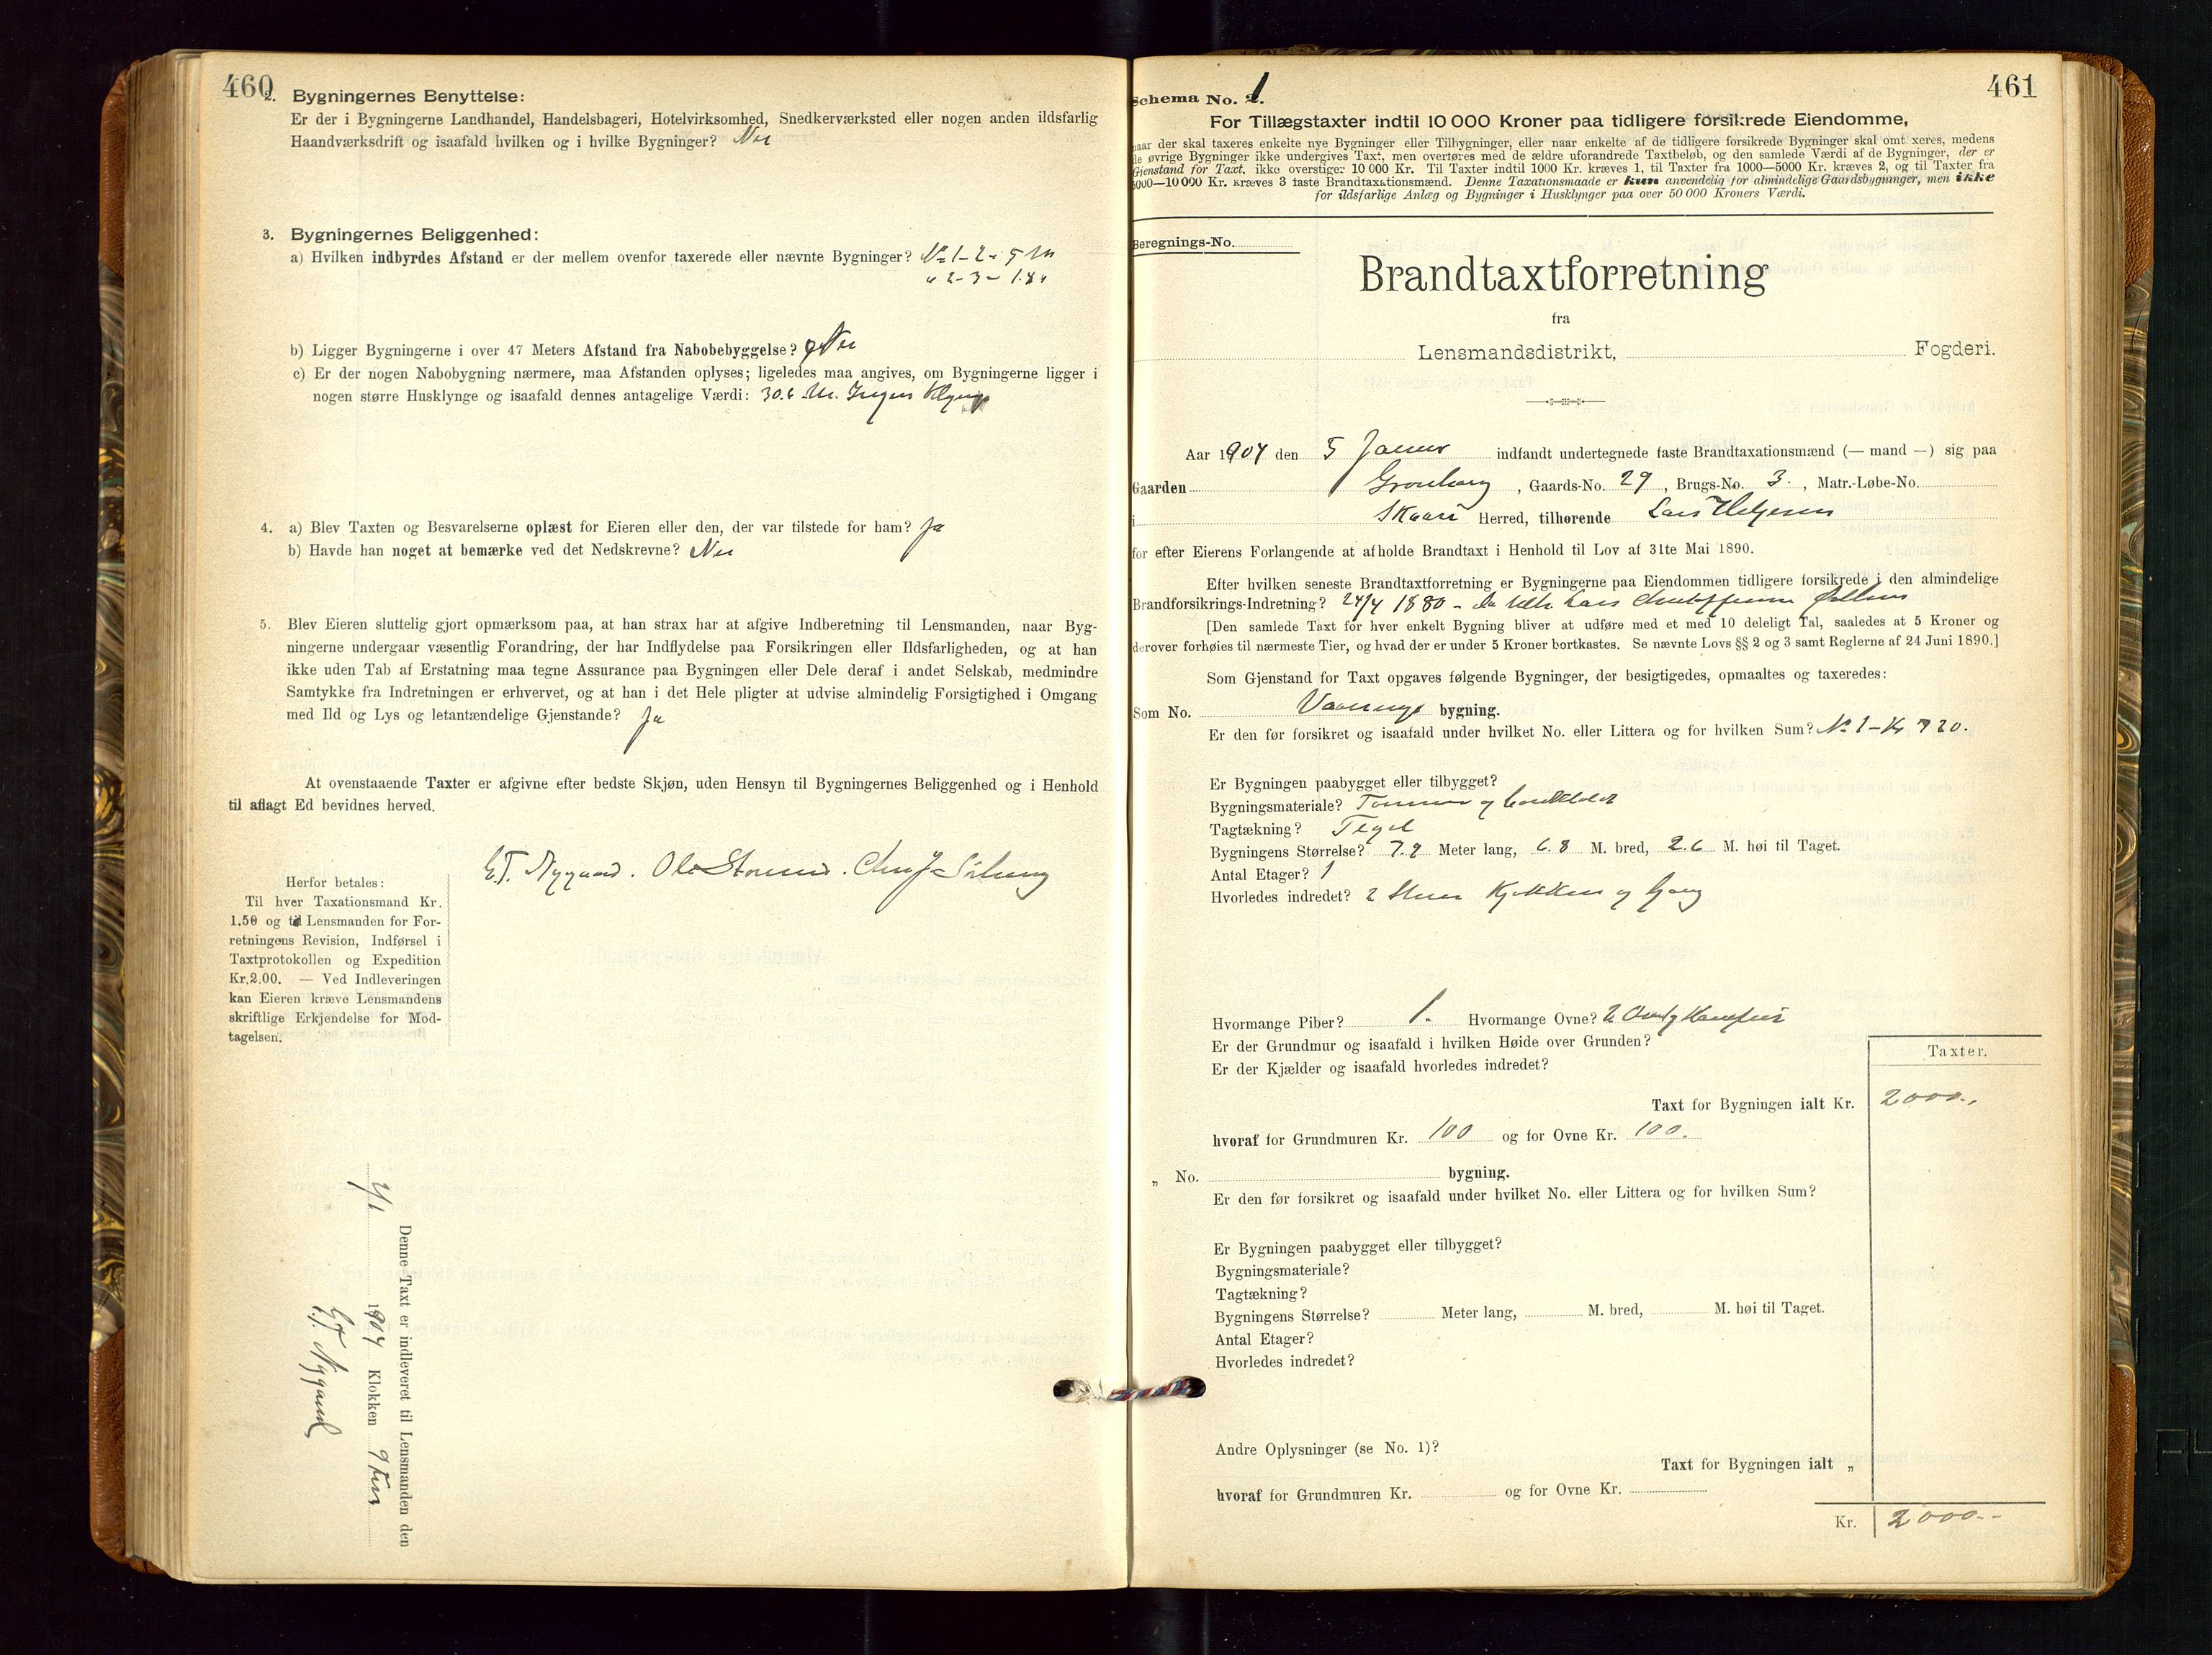 460
2. Bygningernes Benyttelse:
Er der i Bygningerne Landhandel, Handelsbageri, Hotelvirksomhed, Snedkerværksted eller nogen anden ildsfarlig
Haandværksdrift og isaafald hvilken og i hvilke Bygninger? Nei
3. Bygningernes Beliggenhed:
a) Hvilken indbyrdes Afstand er der mellem ovenfor taxerede eller nævnte Bygninger? No 1-2 - 5 m
" 2-3 - 1.8 "
b) Ligger Bygningerne i over 47 Meters Afstand fra Nabobebyggelse? Nei
c) Er der nogen Nabobygning nærmere, maa Afstanden oplyses; ligeledes maa angives, om Bygningerne ligger i
nogen større Husklynge og isaafald dennes antagelige Værdi: 30.6 M. Ingen Klynge
4. a) Blev Taxten og Besvarelserne oplæst for Eieren eller den, der var tilstede for ham? Ja
b) Havde han noget at bemærke ved det Nedskrevne? Nei
5. Blev Eieren sluttelig gjort opmærksom paa, at han strax har at afgive Indberetning til Lensmanden, naar Byg-
ningerne undergaar væsentlig Forandring, der har Indflydelse paa Forsikringen eller Ildsfarligheden, og at han
ikke uden Tab af Erstatning maa tegne Assurance paa Bygningen eller Dele deraf i andet Selskab, medmindre
Samtykke fra Indretningen er erhvervet, og at han i det Hele pligter at udvise almindelig Forsigtighed i Omgang
med Ild og Lys og letantændelige Gjenstande? Ja
At ovenstaaende Taxter er afgivne efter bedste Skjøn, uden Hensyn til Bygningernes Beliggenhed og i Henhold
til aflagt Ed bevidnes herved.
E.T. Nygaard. Ole Storesund.
Herfor betales:
Til hver Taxationsmand Kr.
1.50 og til Lensmanden for For-
retningens Revision, Indførsel i
Taxtprotokollen og Expedition
Kr. 2.00. — Ved Indleveringen
kan Eieren kræve Lensmandens
skriftlige Erkjendelse for Mod-
tagelsen.
Denne Taxt er indleveret til Lensmanden den
1904 Klokken 9
E.T. Nygaard
461
Schema No. 1.
For Tillægstaxter indtil 10 000 Kroner paa tidligere forsikrede Eiendomme,
naar der skal taxeres enkelte nye Bygninger eller Tilbygninger, eller naar enkelte af de tidligere forsikrede Bygninger skal omtaxeres, medens
de øvrige Bygninger ikke undergives Taxt, men overtøres med de ældre uforandrede Taxtbeløb, og den samlede Værdi af de Bygninger, der er
Gjenstand for Taxt, ikke overstiger 10 000 Kr. Til Taxter indtil 1000 Kr. kræves 1, til Taxter fra 1000—5000 Kr. kræves 2, og til Taxter fra
5000—10 000 Kr. kræves 3 faste Brandtaxationsmænd. Denne Taxationsmaade er kun anvendelig for almindelige Gaardsbygninger, men ikke
for ildsfarlige Anlæg og Bygninger i Husklynger paa over 50 000 Kroners Værdi.
Beregnings-No.
Brandtaxtforretning
fra
Lensmandsdistrikt, Fogderi.
Aar 1904 den 5 Januar indfandt undertegnede faste Brandtaxationsmænd (— mand —) sig paa
Gaarden Grønhaug, Gaards-No. 29, Brugs-No. 3., Matr.-Løbe-No.
i Skaare Herred, tilhørende Lars Helgesen
for efter Eierens Forlangende at afholde Brandtaxt i Henhold til Lov af 31te Mai 1890.
Efter hvilken seneste Brandtaxtforretning er Bygningerne paa Eiendommen tidligere forsikrede i den almindelige
Brandforsikrings-Indretning? 24/4 1880 -
[Den samlede Taxt for hver enkelt Bygning bliver at udføre med et med 10 deleligt Tal, saaledes at 5 Kroner og
derover forhøies til nærmeste Tier, og hvad der er under 5 Kroner bortkastes. Se nævnte Lovs §§ 2 og 3 samt Reglerne af 24 Juni 1890.]
Som Gjenstand for Taxt opgaves følgende Bygninger, der besigtigedes, opmaaltes og taxeredes:
Som No. Vaanings bygning.
Er den før forsikret og isaafald under hvilket No. eller Littera og for hvilken Sum? No 1 - Kr 720.
Er Bygningen paabygget eller tilbygget?
Bygningsmateriale? Tømmer og bordklædt
Tagtækning? Tegel
Bygningens Størrelse? 7.9 Meter lang, 6.8 M. bred, 2.6 M. høi til Taget.
Antal Etager? 1
Hvorledes indredet? 2 Stuer Kjøkken og Gang
Hvormange Piber? 1. Hvormange Ovne? 2 Ovne og Komfur
Er der Grundmur og isaafald i hvilken Høide over Grunden?
Er der Kjælder og isaafald hvorledes indredet?
Taxter.
Taxt for Bygningen ialt Kr. 2000.,
hvoraf for Grundmuren Kr. 100 og for Ovne Kr. 100.
„ No. bygning.
Er den før forsikret og isaafald under hvilket No. eller Littera og for hvilken Sum?
Er Bygningen paabygget eller tilbygget?
Bygningsmateriale?
Tagtækning?
Bygningens Størrelse? Meter lang, M. bred, M. høi til Taget.
Antal Etager?
Hvorledes indredet?
Andre Oplysninger (se No. 1)?
Taxt for Bygningen ialt „
hvoraf for Grundmuren Kr. og for Ovne Kr.
Kr. 2000.-